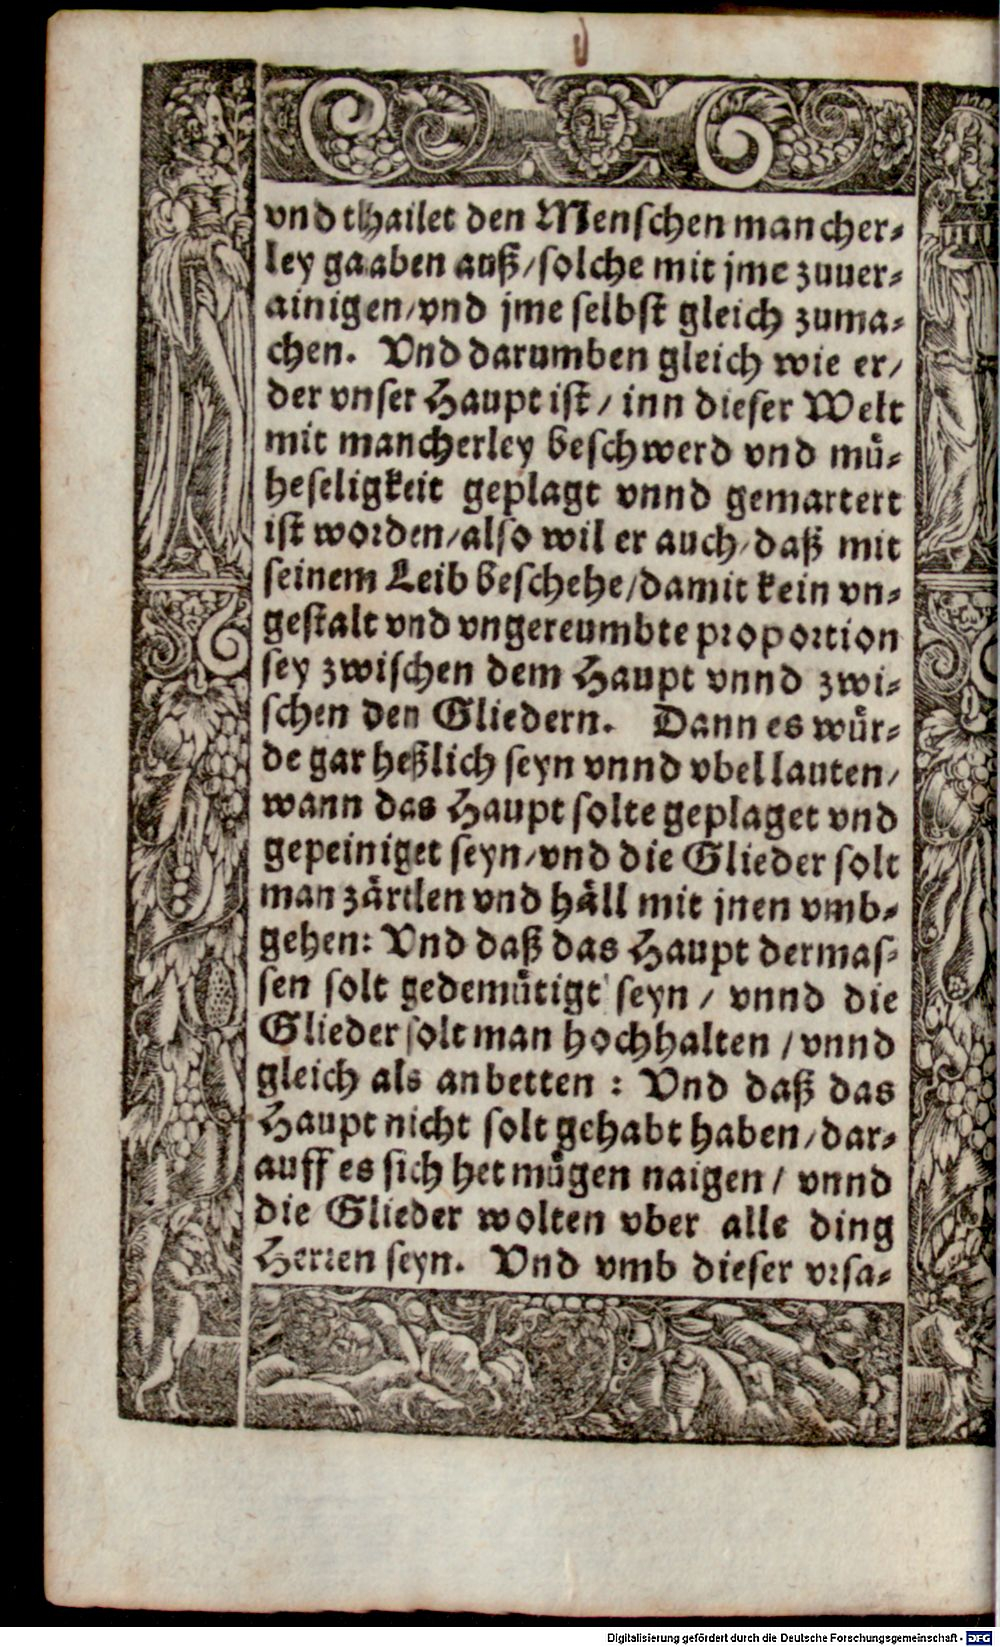 vnd thailet den Menschen mancher⸗
ley gaaben auß/solche mit jme zuuer⸗
ainigen/vnd jme selbst gleich zuma⸗
chen. Vnd darumben gleich wie er/
der vnser Haupt ist/ inn dieser Welt
mit mancherley beschwerd vnd muͤ⸗
heseligkeit geplagt vnnd gemartert
ist worden/also wil er auch/daß mit
seinem Leib beschehe/damit kein vn⸗
gestalt vnd vngereumbte proportion
sey zwischen dem Haupt vnnd zwi⸗
schen den Gliedern. Dann es wuͤr⸗
de gar heßlich seyn vnnd vbel lauten/
wann das Haupt solte geplaget vnd
gepeiniget seyn/vnd die Glieder solt
man zaͤrtlen vnd haͤll mit jnen vmb⸗
gehen: Vnd daß das Haupt dermas⸗
sen solt gedemuͤtigt seyn / vnnd die
Glieder solt man hochhalten / vnnd
gleich als anbetten : Vnd daß das
Haupt nicht solt gehabt haben/dar⸗
auff es sich het muͤgen naigen / vnnd
die Glieder wolten vber alle ding
Herren seyn. Vnd vmb dieser vrsa⸗
Digitalisierung gefördert durch die Deutsche Forschungsgemeinschaft - DFG